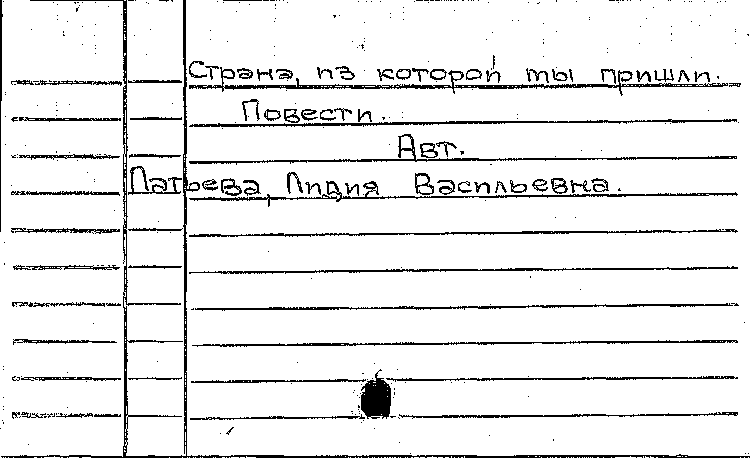 Страна, из которой мы пришли.
Повести.
Авт.
Латьева, Лидия Васильевна.